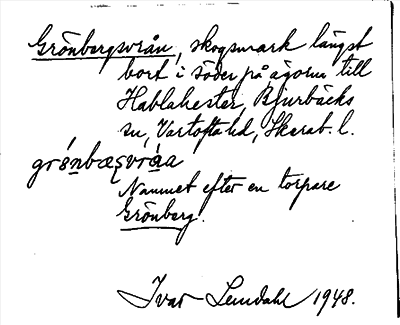 Grönbergsvrån, skogsmark längst
bort i söder på ägorna till
Hablahester, Bjurbäcks
sn, Vartofta hd, Skarab. l.
grö́nbæṣvrȧ́a
Namnet efter en torpare
Grönberg.
Ivar Lundahl 1948.